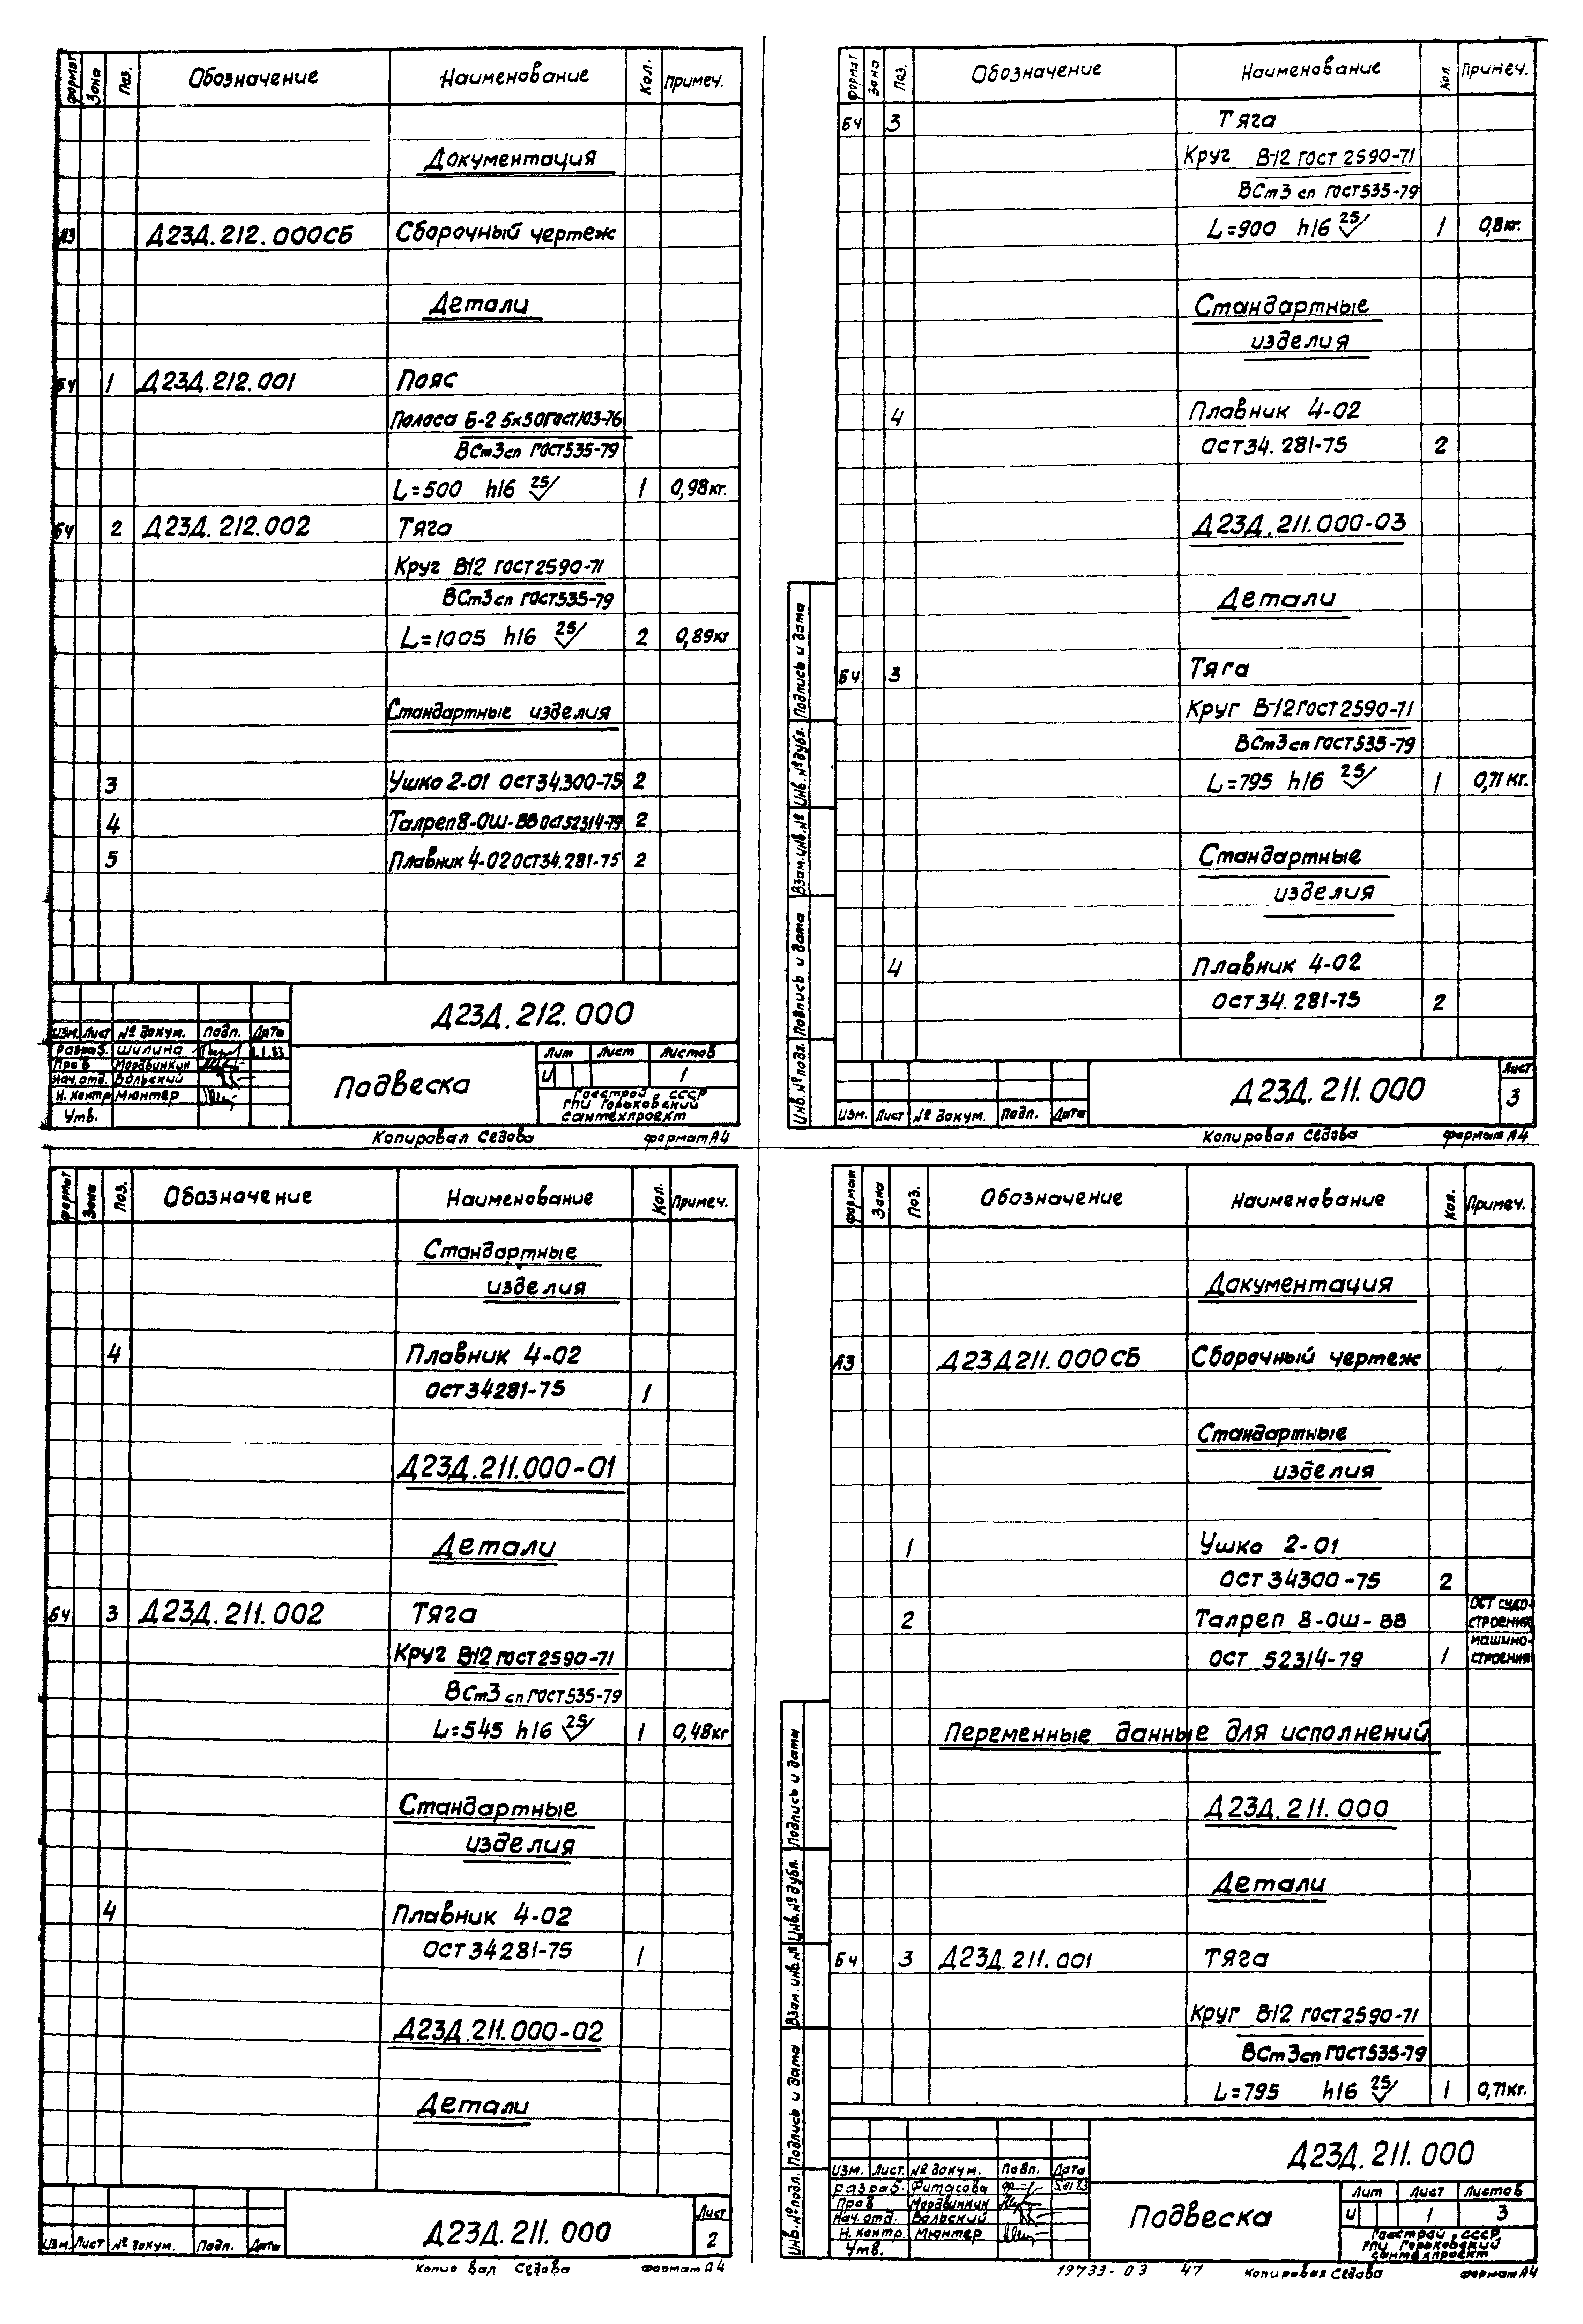 Формат Зона Поз. Обозначение Наименование Кол. Примеч.
Документация
А3 Д23Д.212.000СБ Сборочный чертеж
Детали
БЧ 1 Д23Д.212.001 Пояс
Полоса Б-2 5х50 ГОСТ103-76
ВСт3сп ГОСТ535-79
L=500 h16 25 1 0,98кг.
БЧ 2 Д23Д.212.002 Тяга
Круг В12 ГОСТ2590-71
ВСт3сп ГОСТ535-79
L=1005 h16 25 2 0,89кг
Стандартные изделия
3 Ушко 2-01 ОСТ34.300-75 2
4 Талреп8-ОШ-ВВ ОСТ52314-79 2
5 Плавник 4-02 ОСТ34.281-75 2
Д23Д.212.000
Изм. Лист № докум. Подп. Дата
Разраб. Шилина
Пров Мордвинкин
Нач.отд. Вольский
Н. контр Мюнтер
Утв.
Подвеска
Лит Лист Листов
И 1
Госстрой СССР
ГПИ Горьковский
сантехпроект
Копировал Седова формат А4
Формат Зона Поз. Обозначение Наименование Кол. Примеч.
БЧ 3 Тяга
Круг В-12 ГОСТ 2590-71
ВСт3 сп ГОСТ535-79
L=900 h16 25 1 0,8кг.
Стандартные
изделия
4 Плавник 4-02
ОСТ34.281-75 2
Д23Д.211.000-03
Детали
БЧ 3 Тяга
Круг В-12 ГОСТ2590-71
ВСт3сп ГОСТ535-79
L=795 h16 25 1 0,71 кг.
Стандартные
изделия
4 Плавник 4-02
ОСТ34.281-75 2
Инв.№ подл. Подпись и дата Взам.инв.№ Инв.№ дубл. Подпись и дата
Изм. Лист № докум. Подп. Дата
Д23Д.211.000
Лист
3
Копировал Седова формат А4
Формат Зона Поз. Обозначение Наименование Кол. Примеч.
Стандартные
изделия
4 Плавник 4-02
ОСТ34281-75 1
Д23Д.211.000-01
Детали
БЧ 3 Д23Д.211.002 Тяга
Круг В12 ГОСТ2590-71
ВСт3 сп ГОСТ535-79
L=545 h16 25 1 0,48кг
Стандартные
изделия
4 Плавник 4-02
ОСТ34281-75 1
Д23Д.211.000-02
Детали
Изм. Лист № докум. Подп. Дата
Д23Д.211.000
Лист
2
Копиро вал Седова формат А4
Формат Зона Поз. Обозначение Наименование Кол. Примеч.
Документация
А3 Д23Д211.000СБ Сборочный чертеж
Стандартные
изделия
1 Ушко 2-01
ОСТ34300-75 2
2 Талреп 8-ОШ-ВВ ОСТ судо-
строения
ОСТ 52314-79 1 машино-
строения
Переменные данные для исполнений
Д23Д.211.000
Детали
БЧ 3 Д23Д.211.001 Тяга
Круг В12 ГОСТ2590-71
ВСт3сп ГОСТ535-79
L=795 h16 25 1 0,71кг.
Инв.№ подл. Подпись и дата Взам.инв.№ Инв.№ дубл. Подпись и дата
Д23Д.211.000
Изм. Лист № докум. Подп. Дата
Разраб. Фитасова
Пров Мордвинкин
Нач.отд. Вольский
Н. контр. Мюнтер
Утв.
Подвеска
Лит Лист Листов
И 1 3
Госстрой СССР
ГПИ Горьковский
сантехпроект
19733-03 47 Копировал Седова формат А4